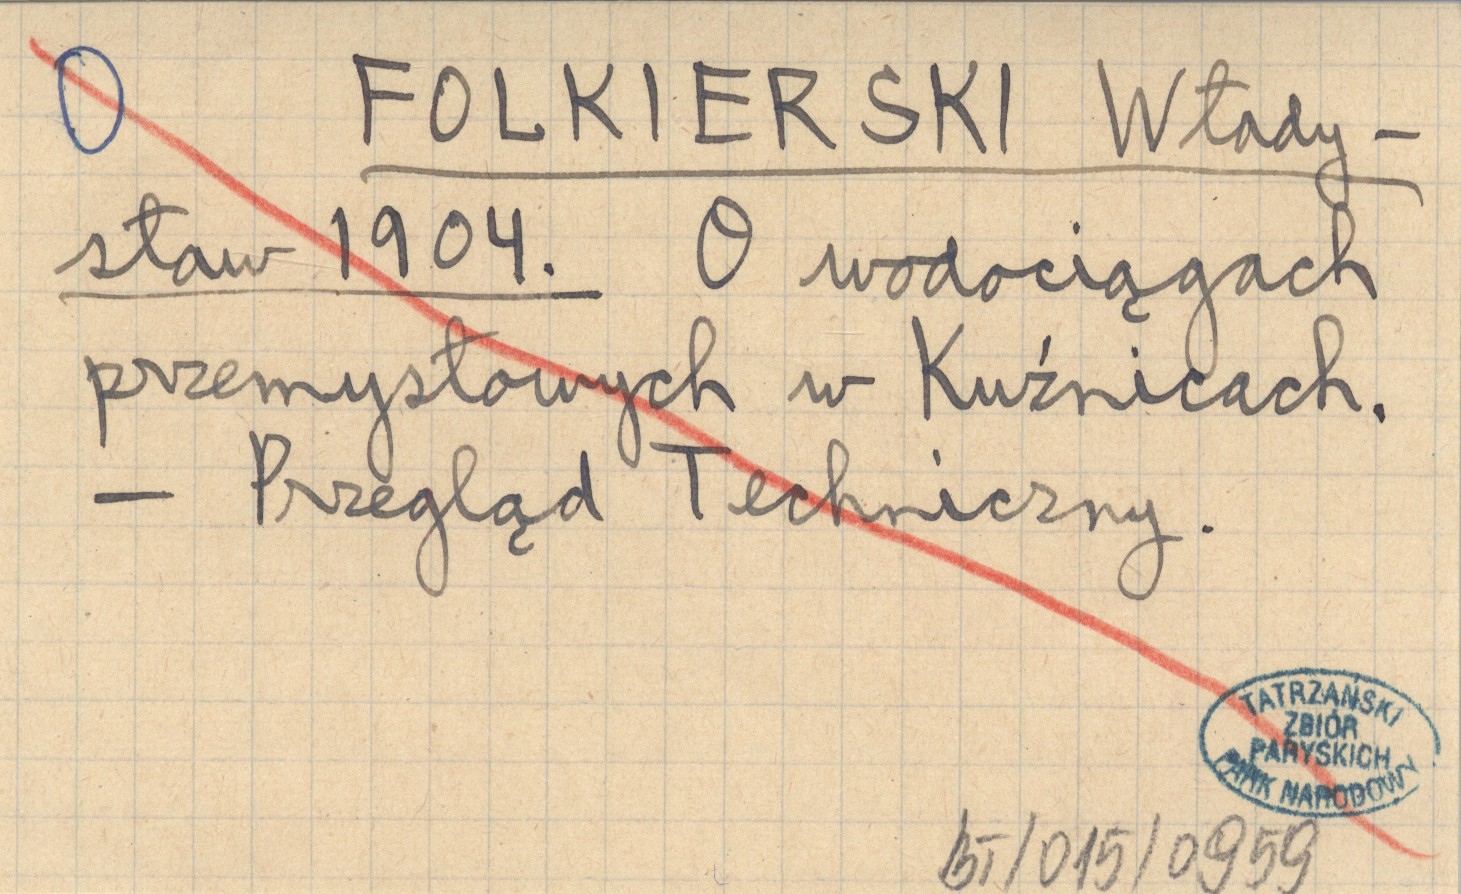 O FOLKIERSKI Włady-
sław 1904. O wodociągach
przemysłowych w Kuźnicach.
— Przegląd Techniczny.
TATRZAŃSKI
ZBIÓR
PARYSKICH
PARK NARODOWY
BT/015/0959